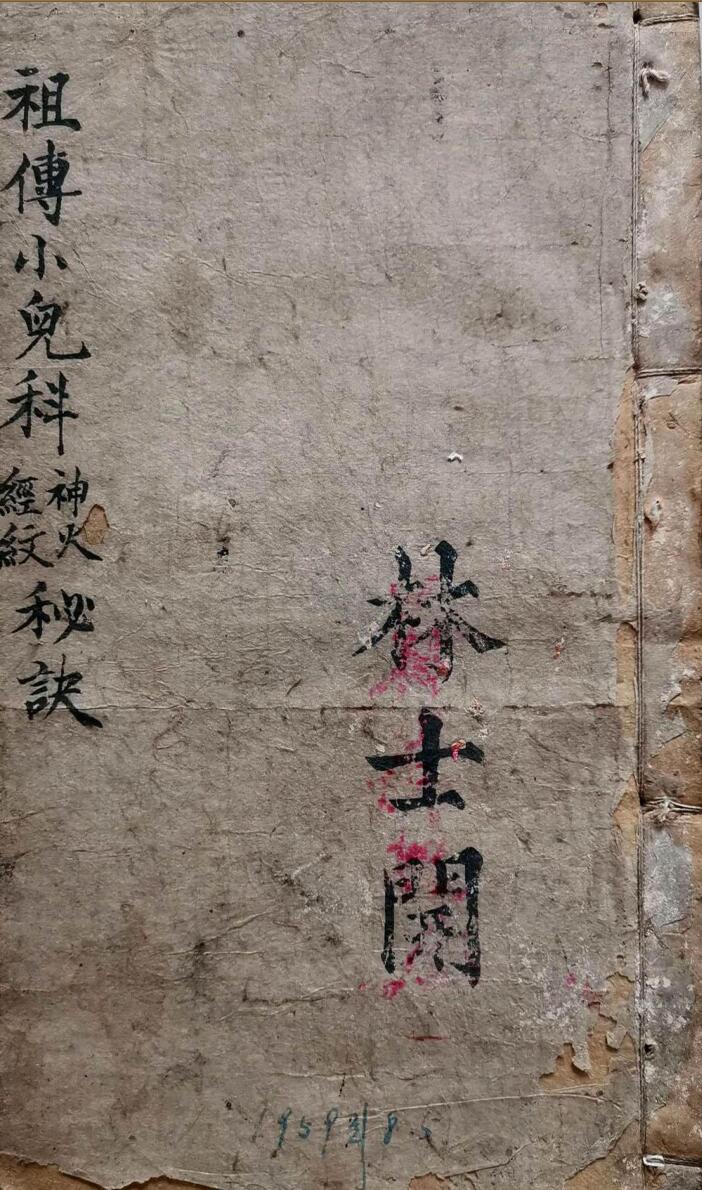 林士開
祖傳小兒科神火經紋秘訣
1959 8.5